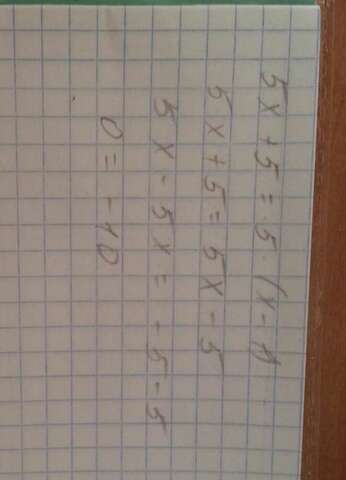 5x+5=5·(x-1)
5x+5=5x-5
5x-5x=-5-5
0=-10